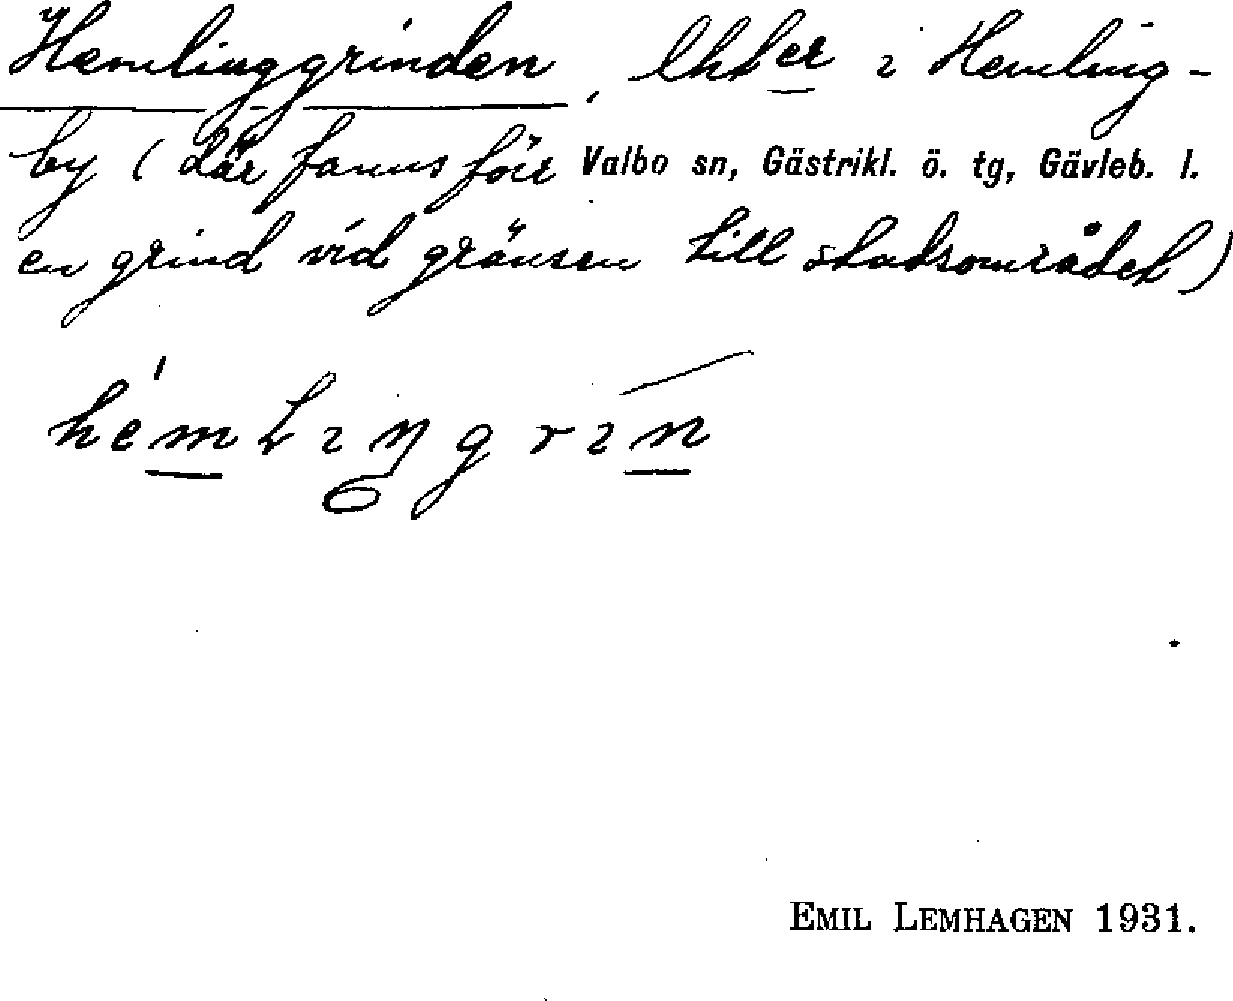 Hemlinggrinden, lhter i Hemling-
by (där fanns förr Valbo sn, Gästrikl. ö. tg, Gävleb. l.
en grind vid gränsen till stadsområdet)
EMIL LEMHAGEN 1931.